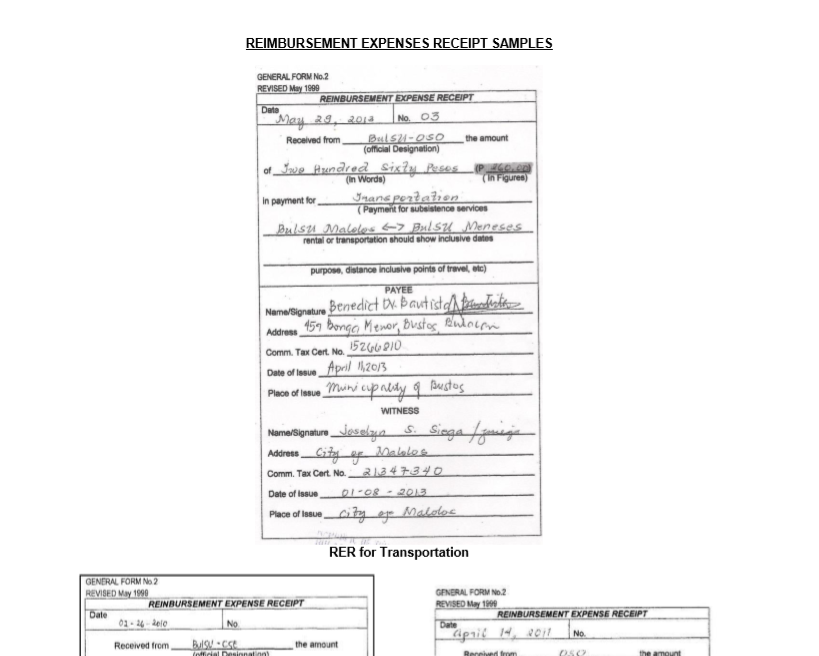 REIMBURSEMENT EXPENSES RECEIPT SAMPLES
GENERAL FORM No.2
REVISED May 1999
REINBURSEMENT EXPENSE RECEIPT
Date May 29, 2013 No. 03
Received from BulSU-OSO the amount
(official Designation)
of Two Hundred Sixty Pesos (P 260.00)
(In Words) (In Figures)
in payment for Transportation
( Payment for subsistence services
BulSU Malolos <-> BulSU Meneses
rental or transportation should show inclusive dates
purpose, distance inclusive points of travel, etc)
PAYEE
Name/Signature Benedict DV. Bautista
Address 459 Bonga Menor, Bustos, Bulacan
Comm. Tax Cert. No. 15266810
Date of Issue April 11, 2013
Place of Issue Municipality of Bustos
WITNESS
Name/Signature Joselyn S. Sioga
Address City of Malolos
Comm. Tax Cert. No. 21347340
Date of Issue 01-08-2013
Place of Issue City of Malolos
RER for Transportation
GENERAL FORM No.2
REVISED May 1999
REINBURSEMENT EXPENSE RECEIPT
Date 02-26-2010 No.
Received from BulSU-CSE the amount
(official Designation)
GENERAL FORM No.2
REVISED May 1999
REINBURSEMENT EXPENSE RECEIPT
Date April 14, 2011 No.
Received from OSO the amount